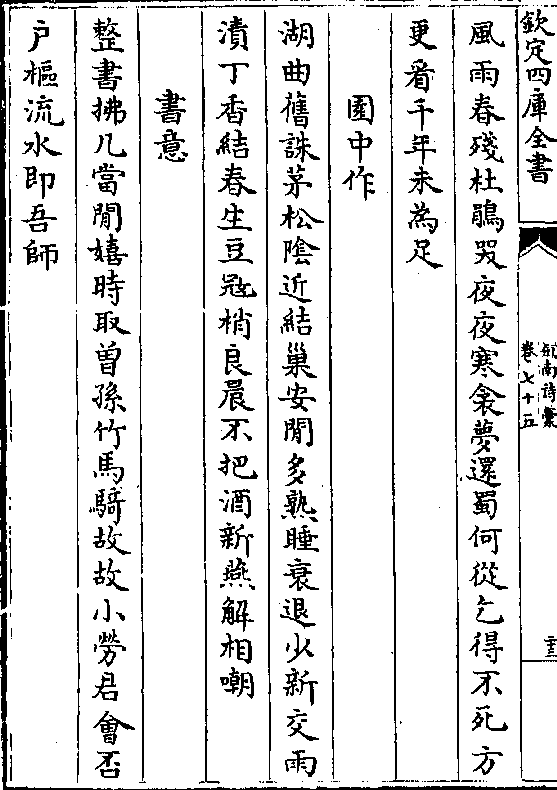 欽定四庫全書
劒南詩藁
卷七十五
十三
風雨春殘杜鵑哭夜夜寒衾夢還蜀何從乞得不死方
更看千年未為足
園中作
湖曲舊誅茅松陰近結巢安閒多熟睡衰退少新交雨
漬丁香結春生豆𦶜梢良晨不把酒新燕解相嘲
書意
整書拂几當閒嬉時取曾孫竹馬騎故故小勞君會否
户樞流水即吾師